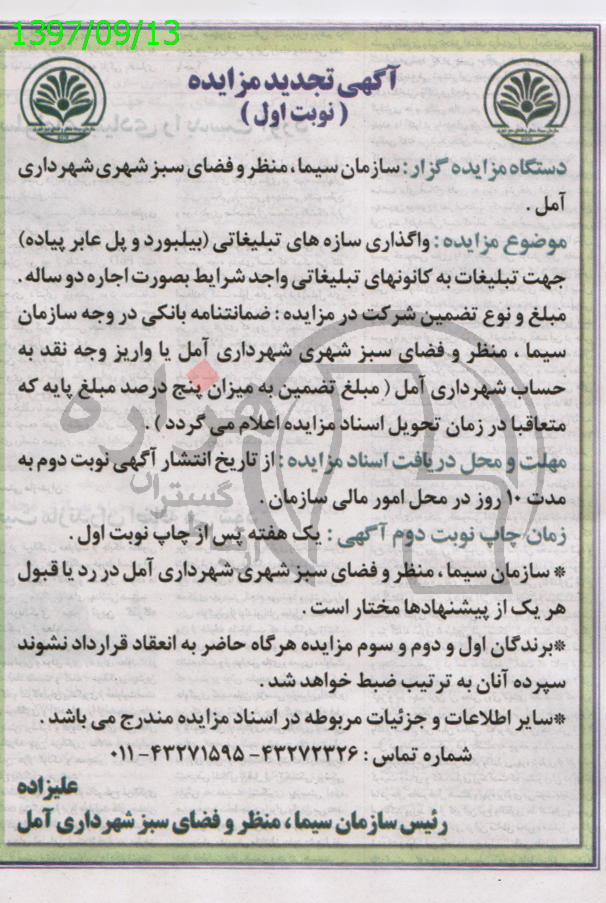 1397/09/13
آگهی تجدید مزایده
( نوبت اول )
دستگاه مزایده گزار : سازمان سیما ، منظر و فضای سبز شهری شهرداری
آمل .
موضوع مزایده : واگذاری سازه های تبلیغاتی (بیلبورد و پل عابر پیاده)
جهت تبلیغات به کانونهای تبلیغاتی واجد شرایط بصورت اجاره دو ساله .
مبلغ و نوع تضمین شرکت در مزایده : ضمانتنامه بانکی در وجه سازمان
سیما ، منظر و فضای سبز شهری شهرداری آمل یا واریز وجه نقد به
حساب شهرداری آمل ( مبلغ تضمین به میزان پنج درصد مبلغ پایه که
متعاقبا در زمان تحویل اسناد مزایده اعلام می گردد ) .
مهلت و محل دریافت اسناد مزایده : از تاریخ انتشار آگهی نوبت دوم به
مدت ۱۰ روز در محل امور مالی سازمان .
زمان چاپ نوبت دوم آگهی : یک هفته پس از چاپ نوبت اول .
* سازمان سیما ، منظر و فضای سبز شهری شهرداری آمل در رد یا قبول
هر یک از پیشنهادها مختار است .
*برندگان اول و دوم و سوم مزایده هرگاه حاضر به انعقاد قرارداد نشوند
سپرده آنان به ترتیب ضبط خواهد شد .
*سایر اطلاعات و جزئیات مربوطه در اسناد مزایده مندرج می باشد .
شماره تماس : ۴۳۲۷۲۳۲۶- ۴۳۲۷۱۵۹۵- ۰۱۱
علیزاده
رئیس سازمان سیما ، منظر و فضای سبز شهرداری آمل
هزاره
گستران